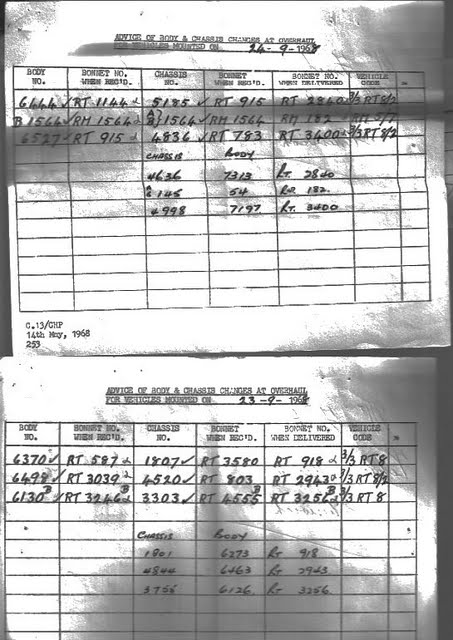 ADVICE OF BODY & CHASSIS CHANGES AT OVERHAUL
FOR VEHICLES MOUNTED ON 24-9-1968
BODY NO. BONNET NO. WHEN REC'D. CHASSIS NO. BONNET WHEN REC'D. BONNET NO. WHEN DELIVERED VEHICLE CODE
6444 ✓ RT 1144 2 5185 ✓ RT 915 RT 2840 2/3 RT8/2
B 1564 ✓ RM 1564 2 A} B} 1564 ✓ RM 1564 RM 182 ✓ RM 5/7
6527 ✓ RT 915 2 4836 ✓ RT 783 RT 3400 2 3/3 RT8/2
CHASSIS BODY
4636 7313 Rt. 2840
A 6145 54 RM 182.
4998 7197 Rt. 3400
C.13/CHP
14th May, 1968
253
ADVICE OF BODY & CHASSIS CHANGES AT OVERHAUL
FOR VEHICLES MOUNTED ON 23-9-1968
BODY NO. BONNET NO. WHEN REC'D. CHASSIS NO. BONNET WHEN REC'D. BONNET NO. WHEN DELIVERED VEHICLE CODE
6370 ✓ RT 587 2 1807 ✓ RT 3580 RT 918 2 3/3 RT8
6498 ✓ RT 3039 2 4520 ✓ RT 803 RT 2943 2 3/3 RT8/2
6130 B ✓ RT 3246 B 2 3303 ✓ RT 4555 B RT 3256 B 2 3/3 RT 8
CHASSIS BODY
1801 6273 Rt 918
4844 6463 Rt 2943
3755 6126 Rt 3256